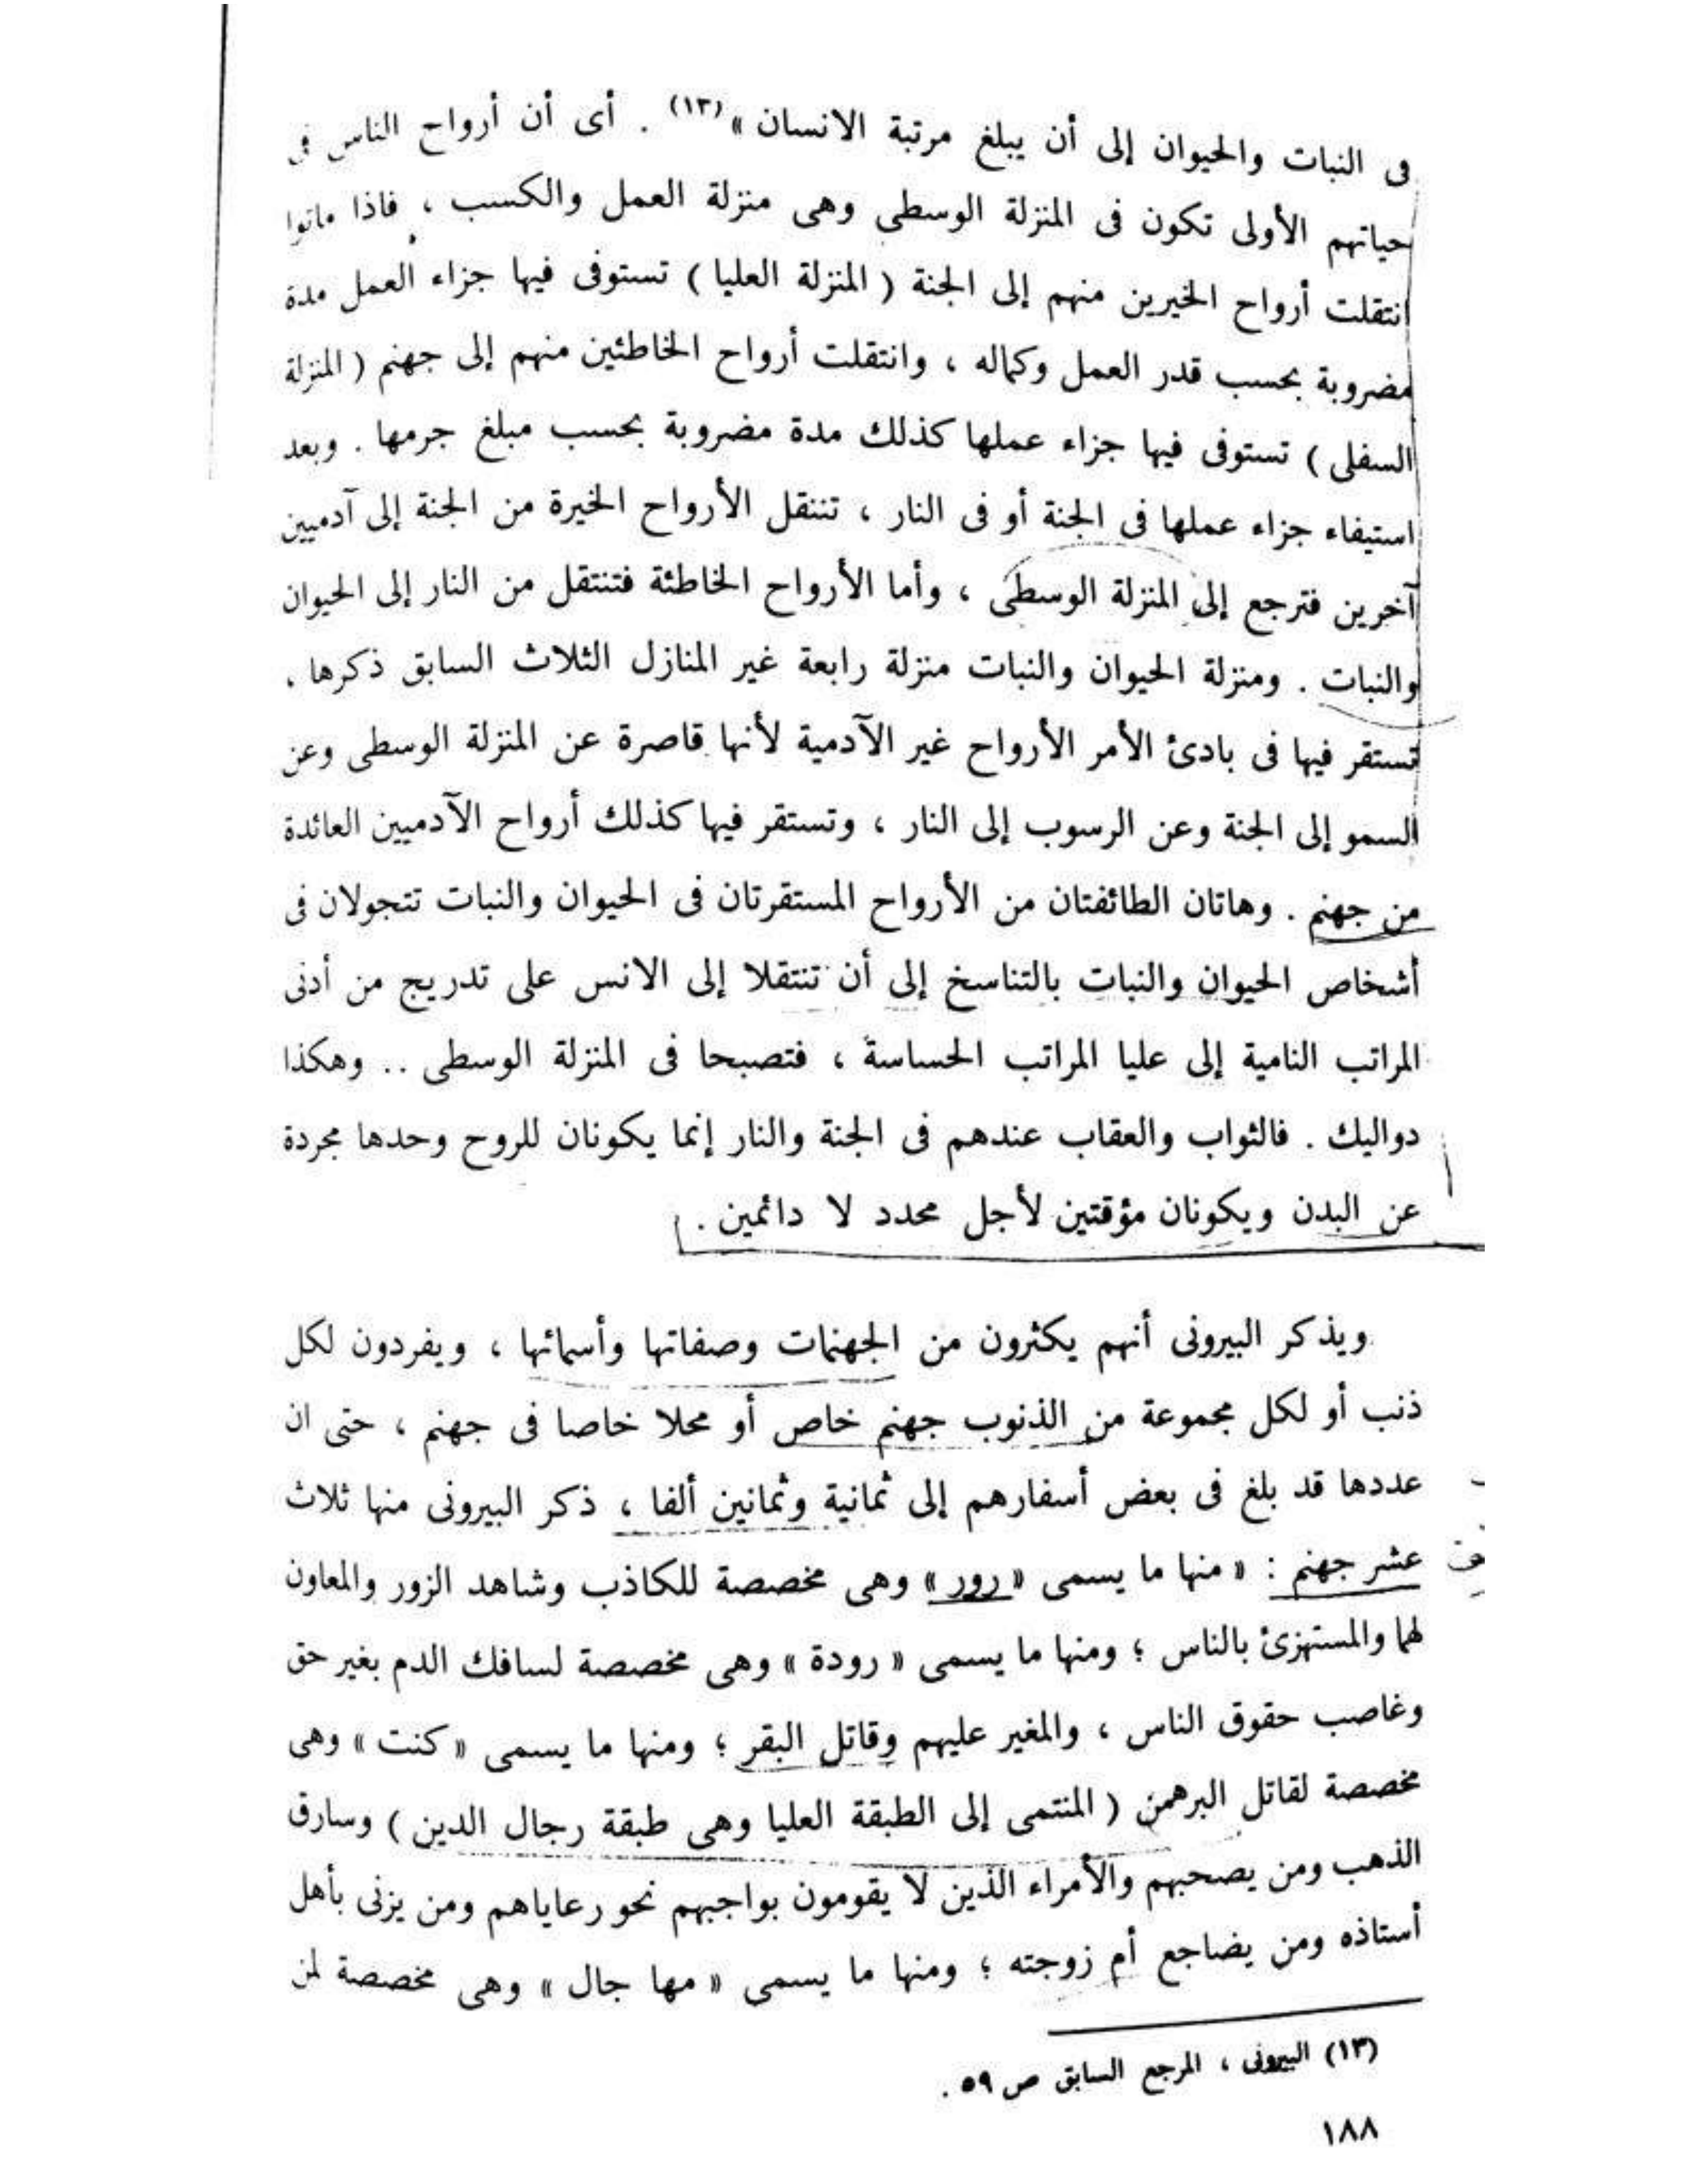 فى النبات والحيوان إلى أن يبلغ مرتبة الانسان »(١٣) . أى أن أرواح الناس فى
حياتهم الأولى تكون فى المنزلة الوسطى وهى منزلة العمل والكسب ، فاذا ماتوا
انتقلت أرواح الخيرين منهم إلى الجنة ( المنزلة العليا ) تستوفى فيها جزاء العمل مدة
مضروبة بحسب قدر العمل وكماله ، وانتقلت أرواح الخاطئين منهم إلى جهنم ( المنزلة
السفلى ) تستوفى فيها جزاء عملها كذلك مدة مضروبة بحسب مبلغ جرمها . وبعد
استيفاء جزاء عملها فى الجنة أو فى النار ، تنتقل الأرواح الخيرة من الجنة إلى آدميين
آخرين فترجع إلى المنزلة الوسطى ، وأما الأرواح الخاطئة فتنتقل من النار إلى الحيوان
والنبات . ومنزلة الحيوان والنبات منزلة رابعة غير المنازل الثلاث السابق ذكرها ،
تستقر فيها فى بادئ الأمر الأرواح غير الآدمية لأنها قاصرة عن المنزلة الوسطى وعن
السمو إلى الجنة وعن الرسوب إلى النار ، وتستقر فيها كذلك أرواح الآدميين العائدة
من جهنم . وهاتان الطائفتان من الأرواح المستقرتان فى الحيوان والنبات تتجولان فى
أشخاص الحيوان والنبات بالتناسخ إلى أن تنتقلا إلى الانس على تدريج من أدنى
المراتب النامية إلى عليا المراتب الحساسة ، فتصبحا فى المنزلة الوسطى .. وهكذا
دواليك . فالثواب والعقاب عندهم فى الجنة والنار إنما يكونان للروح وحدها مجردة
عن البدن ويكونان مؤقتين لأجل محدد لا دائمين .
ويذكر البيرونى أنهم يكثرون من الجهنمات وصفاتها وأسمائها ، ويفردون لكل
ذنب أو لكل مجموعة من الذنوب جهنم خاص أو محلا خاصا فى جهنم ، حتى ان
عددها قد بلغ فى بعض أسفارهم إلى ثمانية وثمانين ألفا ، ذكر البيرونى منها ثلاث
عشر جهنم : « منها ما يسمى « رور » وهى مخصصة للكاذب وشاهد الزور والمعاون
لهما والمستهزئ بالناس ؛ ومنها ما يسمى « رودة » وهى مخصصة لسافك الدم بغير حق
وغاصب حقوق الناس ، والمغير عليهم وقاتل البقر ؛ ومنها ما يسمى « كنت » وهى
مخصصة لقاتل البرهمن ( المنتمى إلى الطبقة العليا وهى طبقة رجال الدين ) وسارق
الذهب ومن يصحبهم والأمراء الذين لا يقومون بواجبهم نحو رعاياهم ومن يزنى بأهل
أستاذه ومن يضاجع أم زوجته ؛ ومنها ما يسمى « مها جال » وهى مخصصة لمن
(١٣) البيرونى ، المرجع السابق ص ٥٩ .
١٨٨